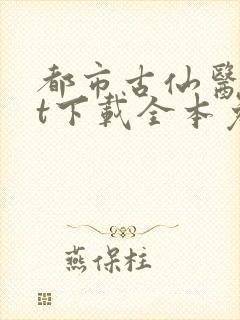 都市古仙醫
t下載全本
燕保柱